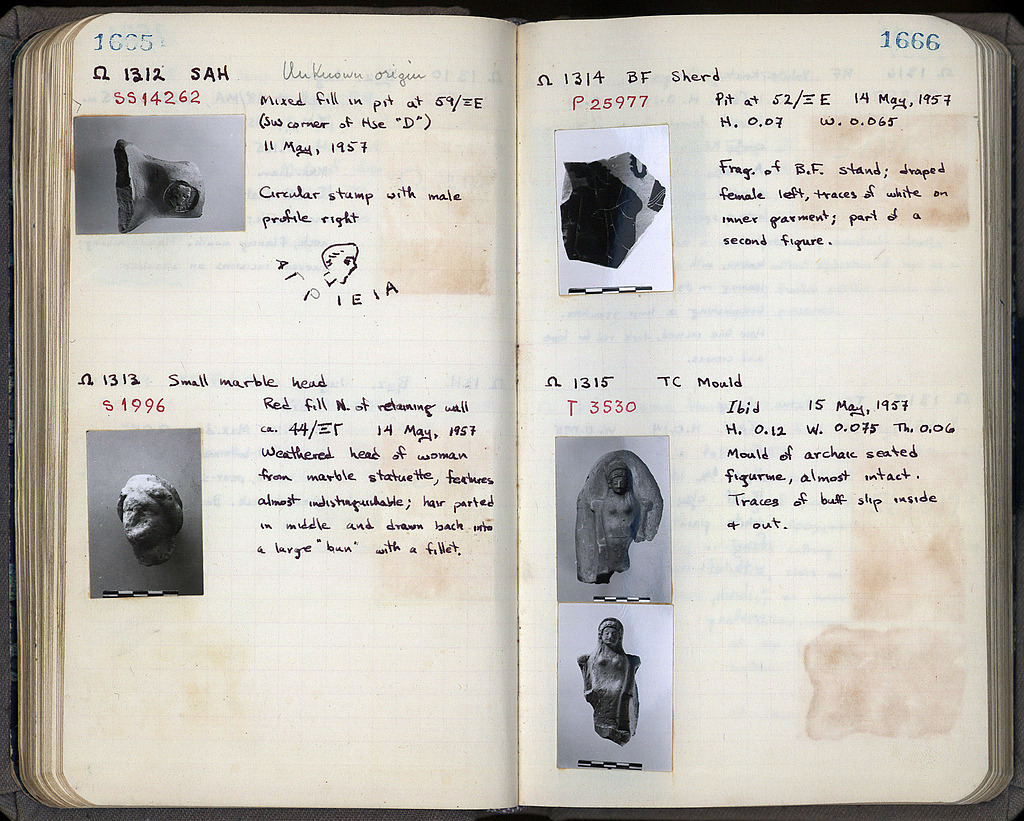 1665
Ω 1312 SAH Unknown origin
SS 14262
Mixed fill in pit at 59/ΞE
(SW corner of Hse "D")
11 May, 1957
Circular stamp with male
profile right
Ω 1313 Small marble head
S 1996
Red fill N. of retaining wall
ca. 44/ΞΓ 14 May, 1957
Weathered head of woman
from marble statuette, features
almost indistinguishable; hair parted
in middle and drawn back into
a large "bun" with a fillet.
1666
Ω 1314 BF Sherd
P 25977
Pit at 52/Ξ E 14 May, 1957
H. 0.07 W. 0.065
Frag. of B.F. stand; draped
female left, traces of white on
inner garment; part of a
second figure.
Ω 1315 TC Mould
T 3530
Ibid 15 May, 1957
H. 0.12 W. 0.075 Th. 0.06
Mould of archaic seated
figurine, almost intact.
Traces of buff slip inside
& out.